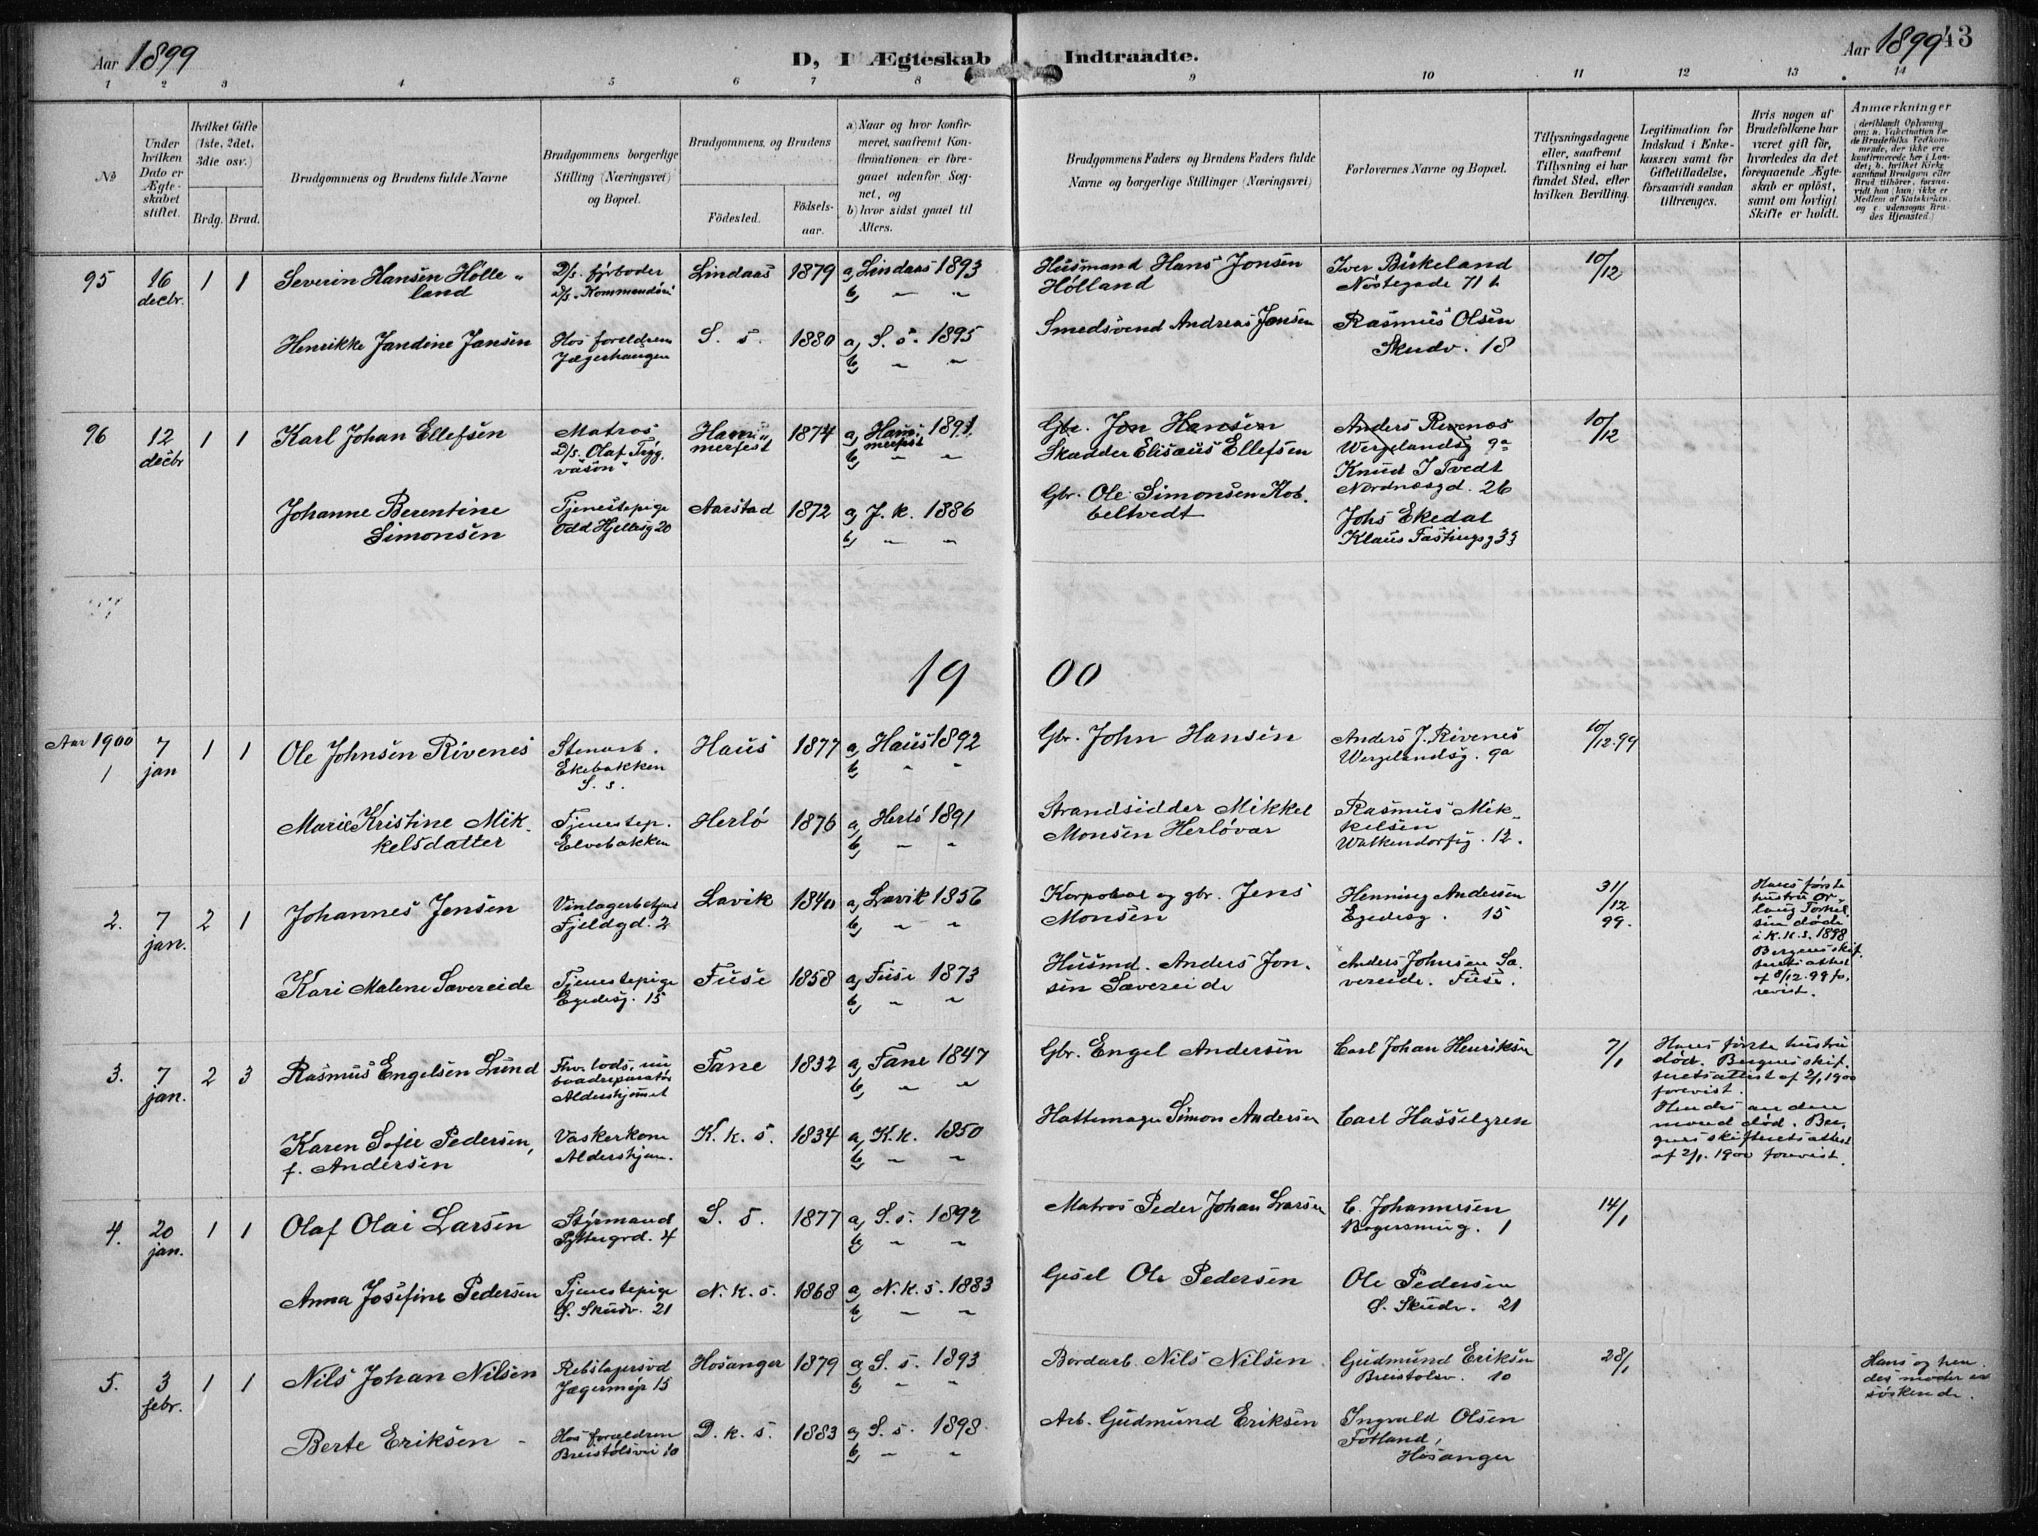 Aar 1899
D, I Ægteskab Indtraadte.
Aar 1899
43
1 2 3 4 5 6 7 8 9 10 11 12 13 14
No
Under hvilken Dato er Ægteskabet stiftet.
Hvilket Gifte (1ste, 2det, 3die osv.)
Brdg. Brud.
Brudgommens og Brudens fulde Navne
Brudgommens borgerlige Stilling (Næringsvei) og Bopæl.
Brudgommens og Brudens
Födested.
Födselsaar.
a) Naar og hvor konfirmeret, saafremt Konfirmationen er foregaaet udenfor Sognet, og
b) hvor sidst gaaet til Alters.
Brudgommens Faders og Brudens Faders fulde Navne og borgerlige Stillinger (Næringsvei)
Forlovernes Navne og Bopæl.
Tillysningsdagene eller, saafremt Tillysning ei har fundet Sted, efter hvilken Bevilling.
Legitimation for Indskud i Enkekassen samt for Giftetilladelse, forsaavidt saadan tiltrænges.
Hvis nogen af Brudefolkene har været gift för, hvorledes da det foregaaende Ægteskab er oplöst, samt om lovligt Skifte er holdt.
Anmærkninger
95 16 decbr. 1 1 Severin Hansen Hölleland D/s. fyrböder Lindaas 1879 a, Lindaas 1893 b, " "
Husmand Hans Jonsen Hölland
Iver Birkeland Nöstegade 71 b
10/12
Henrikke Jandine Jansen Hos foreldrene Jægerhaugen S. s. 1880 a, S. s. 1895 b, " "
Smedsvend Andreas Jansen
Rasmus Olsen Skudv. 18
96 12 decbr 1 1 Karl Johan Ellefsen Matros D/s. Olaf Tryggvason" Hammerfest 1874 a, Hammerfest 1891 b, " "
Gbr. Jon Hansen
Skædder Elisæus Ellefsen
Anders Rivenæs Wergelandsg 9a
Knud J Tvedt Nordnæsgd. 26
10/12
Johanne Berentine Simonsen Tjenestepige Odd Hjeltsg 20 Aarstad 1872 a, J. k. 1886 b, " "
Gbr. Ole Simonsen Kobbeltvedt
Johs Ekedal Klaus Fastingsg 33
1900
Aar 1900
1 7 jan 1 1 Ole Johnsen Rivenes Stenarb. Ekebakken S. s. Haus 1877 a, Haus 1892 b, " "
Gbr. John Hansen
Anders J. Rivenes Wergelandsg. 9a
10/12.99
Marie Kristine Mikkelsdatter Tjenestep. Elvebakken Herlö 1876 a, Herlö 1891 b, " "
Strandsidder Mikkel Monsen Herlövær
Rasmus Mikkelsen Walkendorfsg. 12.
2. 7 jan. 2 1 Johannes Jensen Fjeldgd. 2 Lavik 1840 a, Lavik 1856 b, " "
Korporal og gbr. Jens Monsen
Henning Andersen Egedesg. 15
31/12 99.
Hans förste hustru
döde i K. K. s. 1898
Kari Malene Sævereide Tjenestepige Egedesg. 15 Fuse 1858 a, Fuse 1873 b, " "
Husmd. Anders Jonsen Sævereide
Anders Johnsen Sævereide. Fuse.
3. 7 jan. 2 3 Rasmus Engelsen Lund Fhv. lods, nu baadreparatör Aldershjemmet Fane 1832 a, Fane 1847 b, " "
Gbr. Engel Andersen
Carl Johan Henriksen
7/1
Hans förste hustru död. Bergens skifteretsattest af 2/1 1900 forevist.
Hendes anden mand död. Bergens skifteretsattest af 2/1. 1900 forevist.
Karen Sofie Pedersen, f. Andersen Vaskerkone Aldershjem. K. k. s. 1834 a, K. k. 1850 b, " "
Hattemager Simon Andersen
Carl Hasselgren
4. 20 jan. 1 1 Olaf Olai Larsen Styrmand Pyttergrd. 4 S. s. 1877 a, S. s. 1892 b, " "
Matros Peder Johan Larsen
C. Johannesen 1
14/1
Anna Josefine Pedersen Tjenestepige Ø. Skudv. 21 N. k. s. 1868 a, N. k. s. 1883 b, " "
Gesel Ole Pedersen
Ole Pedersen Ø. Skudv. 21
5. 3 febr. 1 1 Nils Johan Nilsen Rebslagersvd Jægermyr 15 Hosanger 1879 a, S. s. 1893 b, " "
Bordarb. Nils Nilsen
Gudmund Eriksen Breistölsv. 10
28/1
Hans og hendes moder er söskende.
Berte Eriksen Hos forældrene Breistölsvei 10 D. k. s. 1883 a, S. s. 1898. b, " "
Arb. Gudmund Eriksen
Ingvald Olsen Fotland, Hosanger